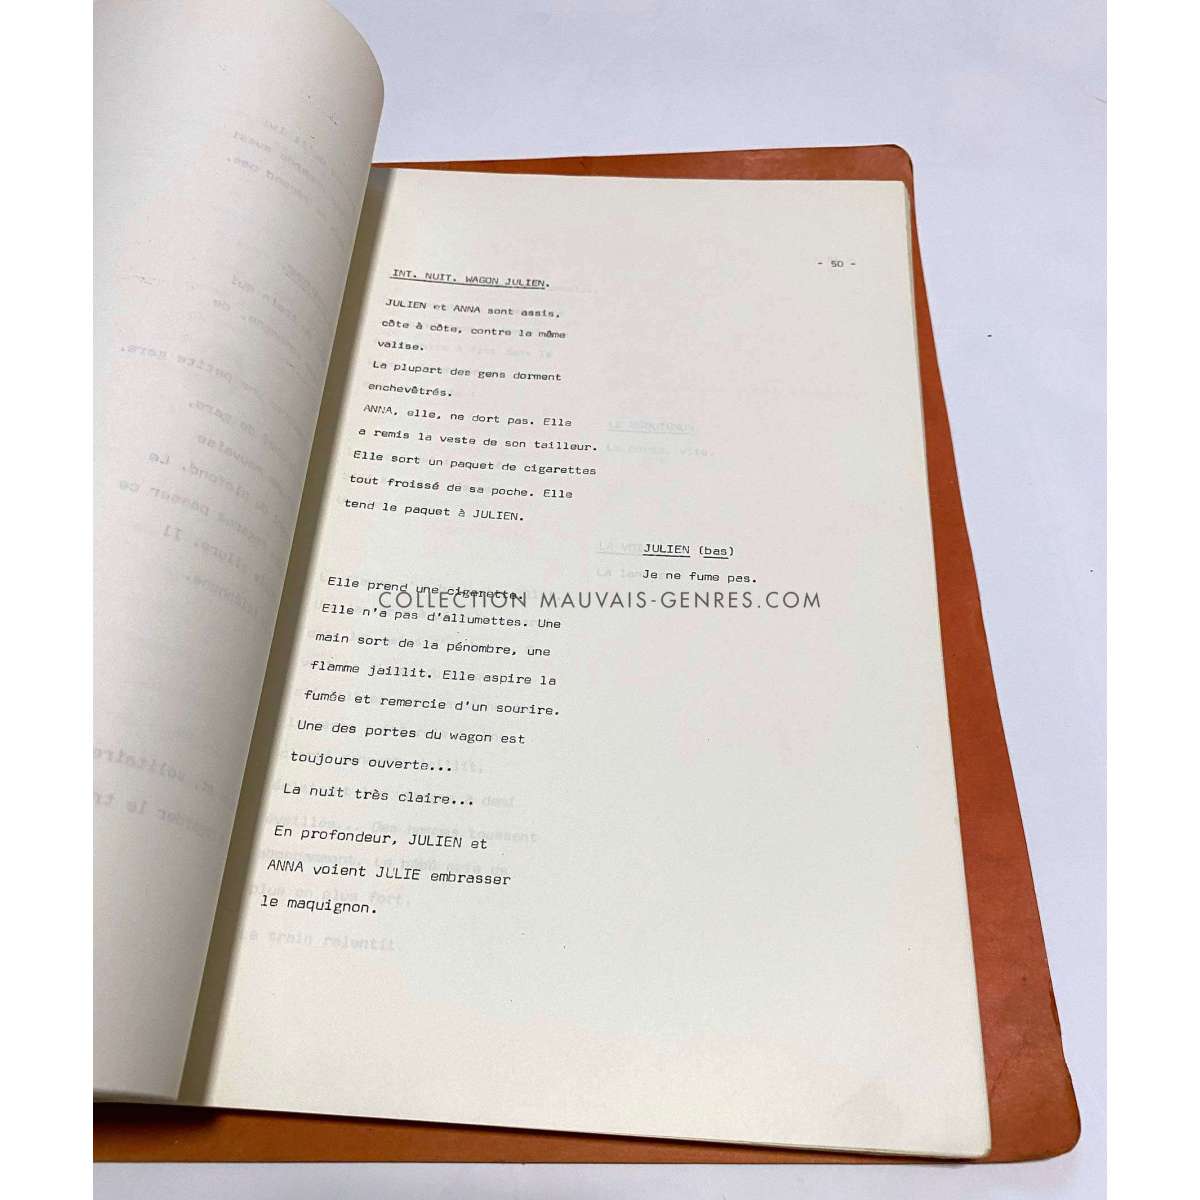 - 50 -
INT. NUIT. WAGON JULIEN.
JULIEN et ANNA sont assis.
côte à côte, contre la même
valise.
La plupart des gens dorment
enchevêtrés.
ANNA, elle, ne dort pas. Elle
a remis la veste de son tailleur.
Elle sort un paquet de cigarettes
tout froissé de sa poche. Elle
tend le paquet à JULIEN.
JULIEN (bas)
Je ne fume pas.
Elle prend une cigarette.
COLLECTION MAUVAIS-GENRES.COM
Elle n'a pas d'allumettes. Une
main sort de la pénombre, une
flamme jaillit. Elle aspire la
fumée et remercie d'un sourire.
Une des portes du wagon est
toujours ouverte...
La nuit très claire...
En profondeur, JULIEN et
ANNA voient JULIE embrasser
le maquignon.